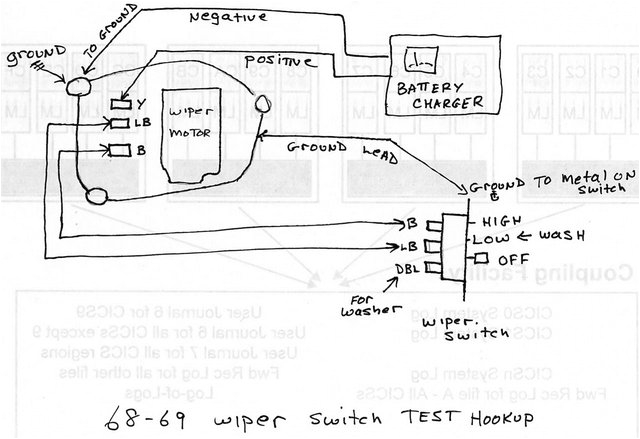 Negative
TO GROUND
ground
Positive
BATTERY
CHARGER
Y
LB
B
wiper
MOTOR
GROUND LEAD
GROUND TO METAL ON
switch
B
LB
DBL
HIGH
LOW ← WASH
OFF
FOR
washer
wiper.
switch
Coupling Facility
CICS0 System Log
CICSn System Log
Fwd Rec Log for file A - All CICSs
User Journal 6 for CICS9
User Journal 6 for all CICSs except 9
User Journal 7 for all CICS regions
Fwd Rec Log for all other files
Log-of-Logs
68-69 wiper switch TEST HOOKUP